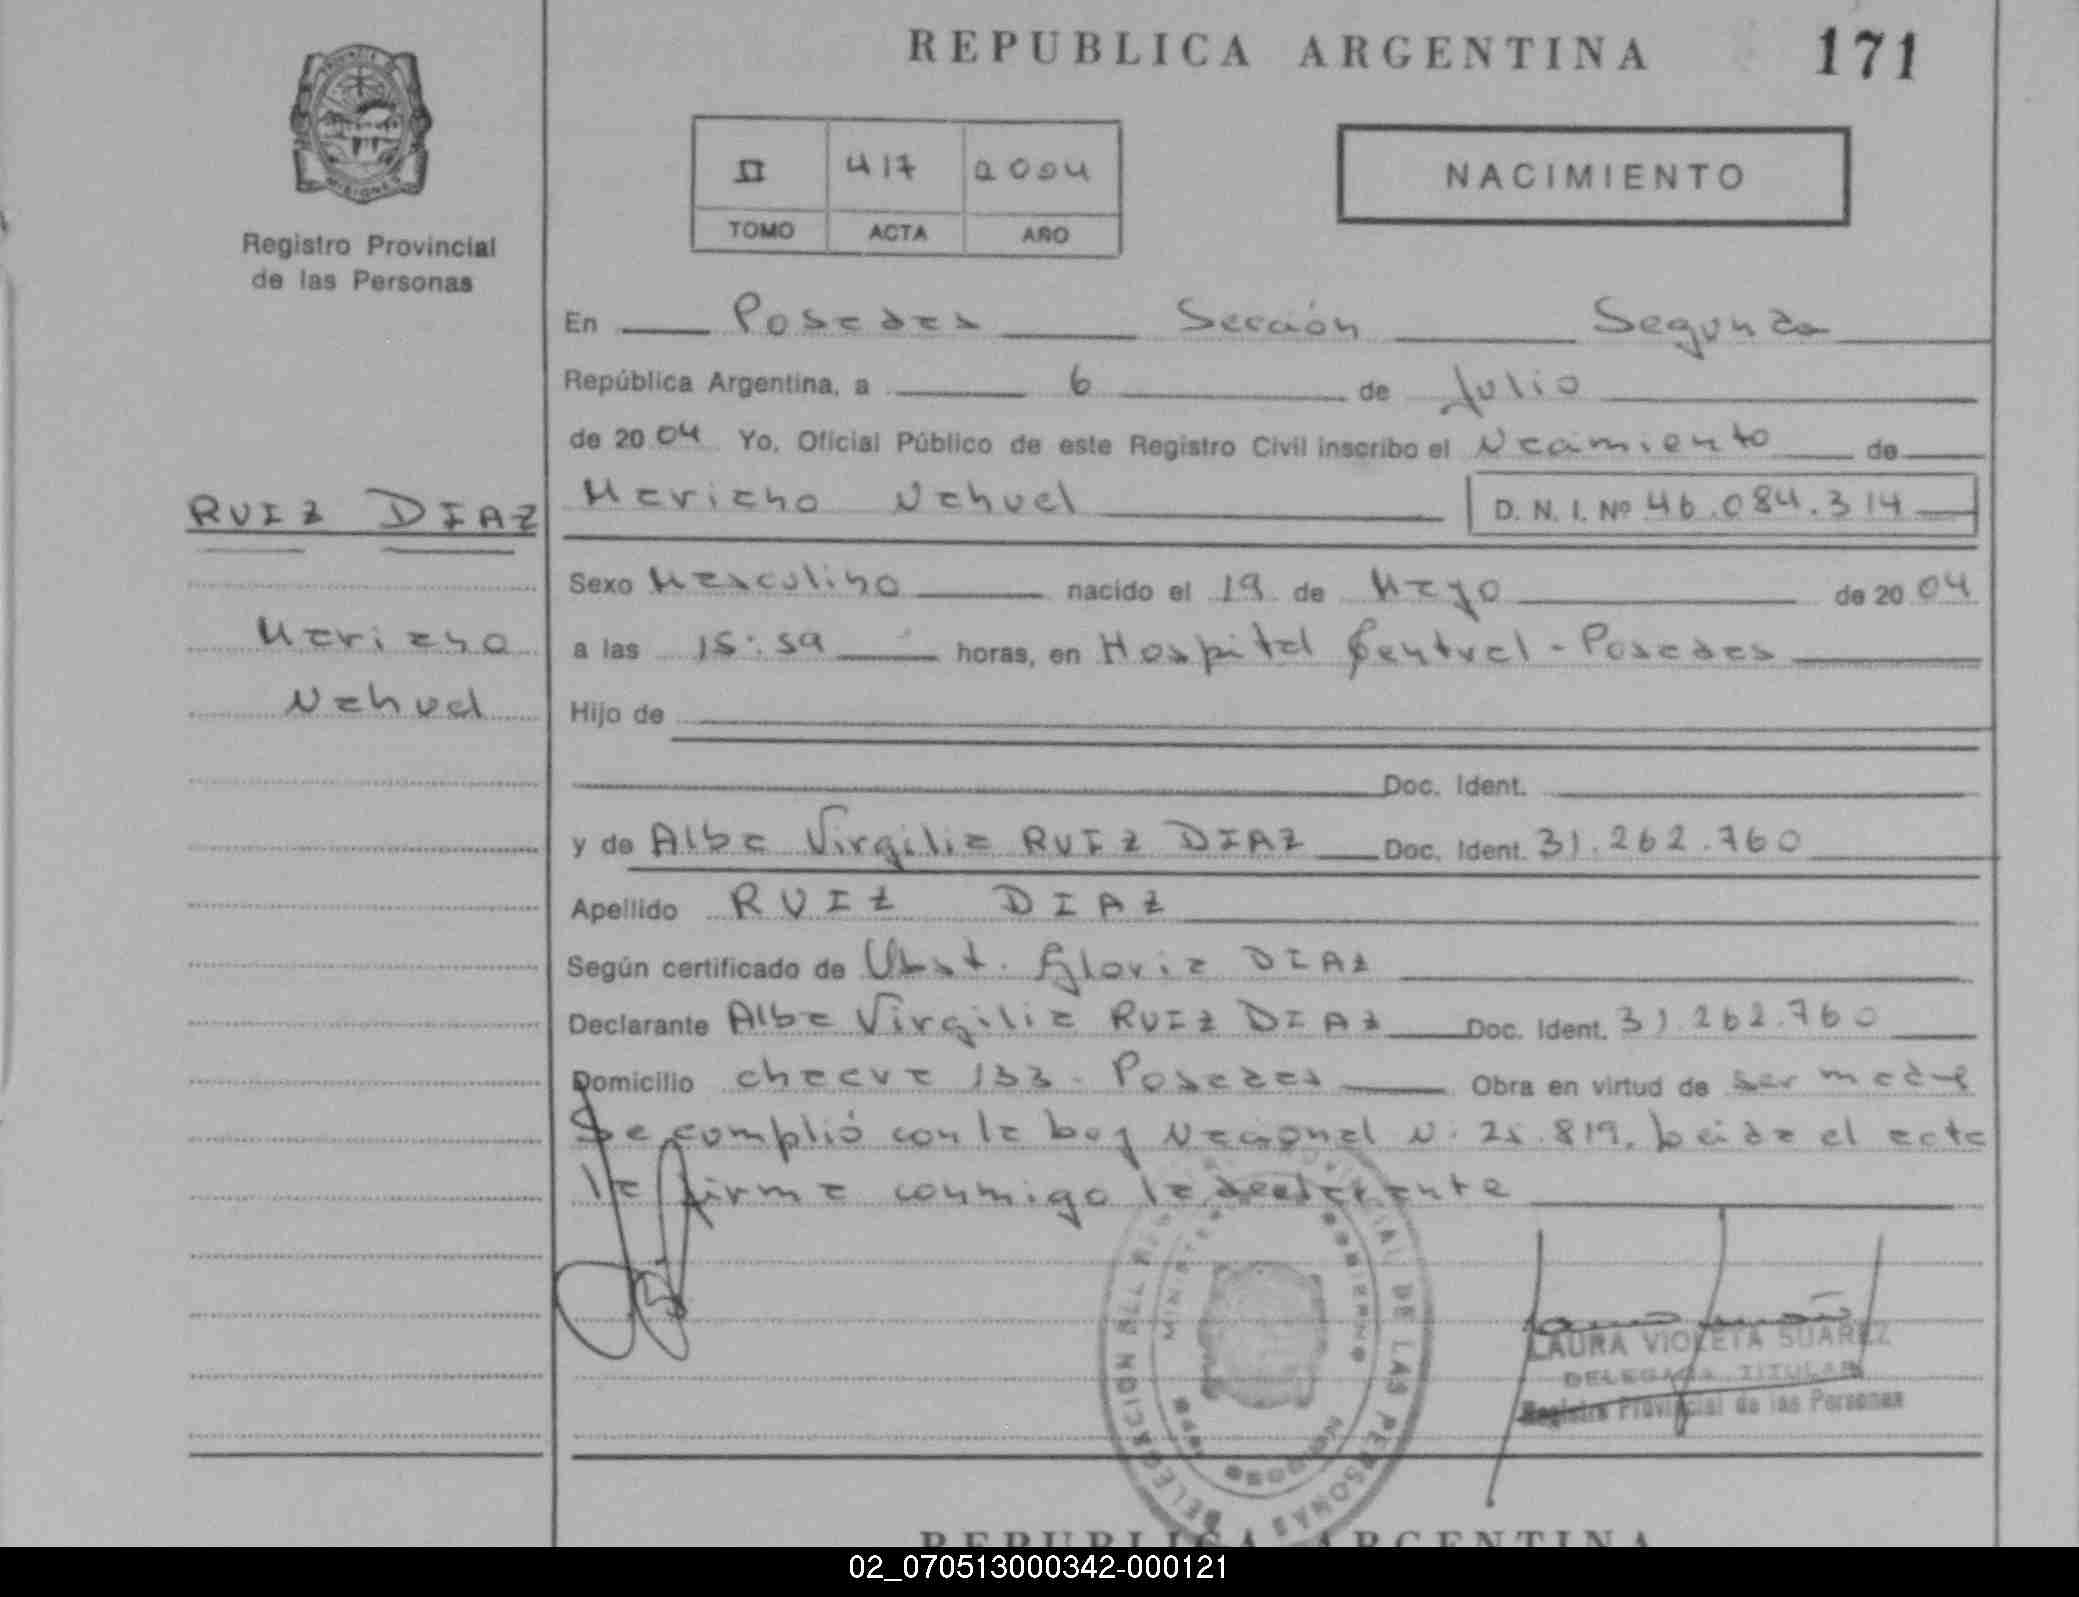 REPUBLICA ARGENTINA 171
II 417 2004
TOMO ACTA AÑO
NACIMIENTO
MISIONES
Registro Provincial
de las Personas
En Posadas Sección Segunda
República Argentina, a 6 de Julio
de 2004 Yo, Oficial Público de este Registro Civil inscribo el Nacimiento de
RUIZ DIAZ
Mariano Nahuel D. N. I. Nº 46.084.314
Sexo Masculino nacido el 19 de Mayo de 2004
Mariano
a las 15:59 horas, en Hospital Central - Posadas
Nahuel
Hijo de
Doc. Ident.
y de Alba Virgilia RUIZ DIAZ Doc. Ident. 31.262.760
Apellido RUIZ DIAZ
Según certificado de Obst. Gloria DIAZ
Declarante Alba Virgilia RUIZ DIAZ Doc. Ident. 31.262.760
Domicilio 133 - Posadas Obra en virtud de ser madre
Se cumplió con la Ley Nacional N. 25.819. Leida el acta
la firma conmigo la declarante
DELEGACION DEL REGISTRO PROVINCIAL DE LAS PERSONAS
MINISTERIO GOBIERNO
MISIONES
LAURA VIOLETA SUAREZ
DELEGADA TITULAR
Registro Provincial de las Personas
REPUBLICA ARGENTINA
02_070513000342-000121